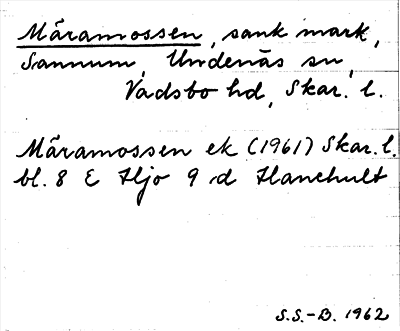 Märamossen, sank mark,
Sannum, Undenäs sn,
Vadsbo hd, Skar. l.
Märamossen ek (1961) Skar. l.
bl. 8 E Hjo 9 d Hanehult
S.S.-B. 1962